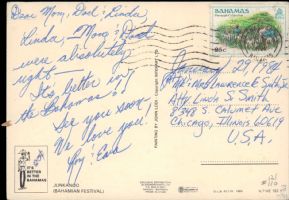 Dear Mom, Dad & Linda
Linda, - Mom & Dad
were absolutely
right -
It's better in
the Bahamas!
See you soon.
We love you!
BAHAMAS
25c
29, 1984
Mr. & Mrs. Lawrence E. Smith, Sr.
Atty Linda S. Smith
8348 S. Calumet Ave
Chicago, Illinois 60619
U.S.A.
PAINTING BY JOHN
IT'S
BETTER
IN THE
BAHAMAS
JUNKANOO
(BAHAMIAN FESTIVAL)